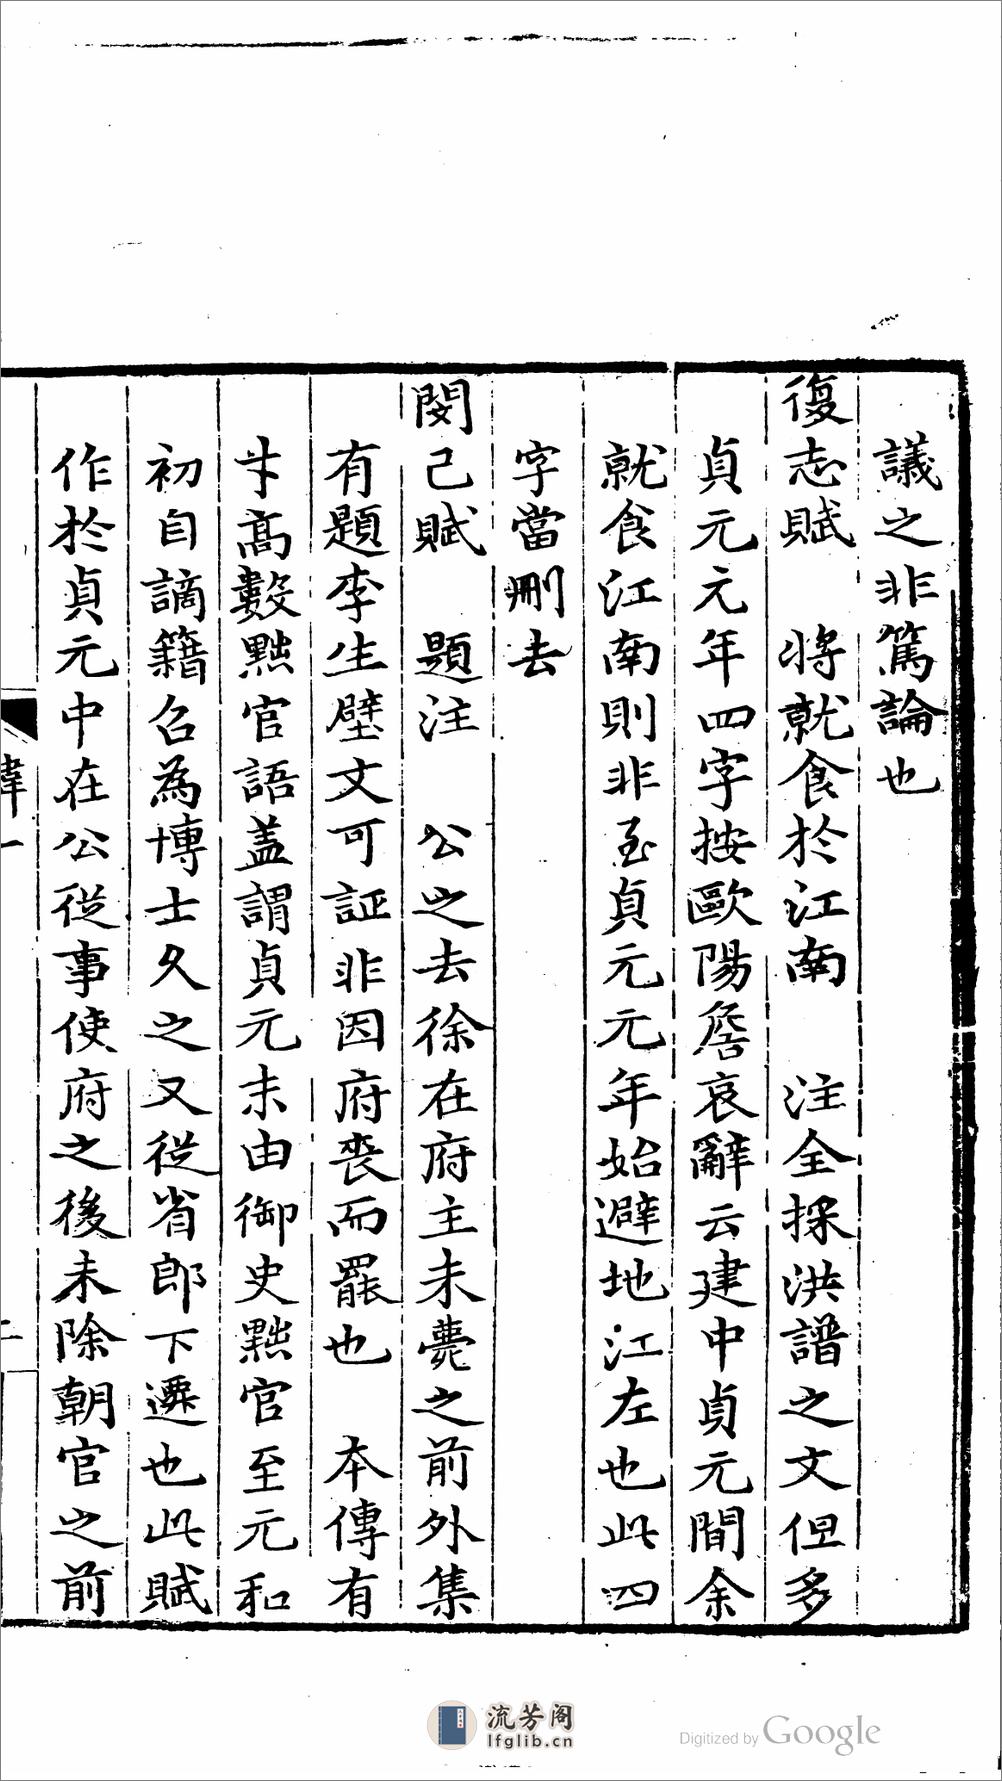 議之非篤論也
復志賦　將就食於江南　注全採洪譜之文但多
貞元元年四字按歐陽詹哀辭云建中貞元間余
就食江南則非至貞元元年始避地江左也此四
字當刪去
閔己賦　題注　公之去徐在府主未薨之前外集
有題李生壁文可証非因府喪而罷也　本傳有
才高數黜官語盖謂貞元末由御史黜官至元和
初自謫籍召為博士久之又從省郎下遷也此賦
作於貞元中在公從事使府之後未除朝官之前
韓一
二
流芳阁
lfglib.cn
Digitized by Google